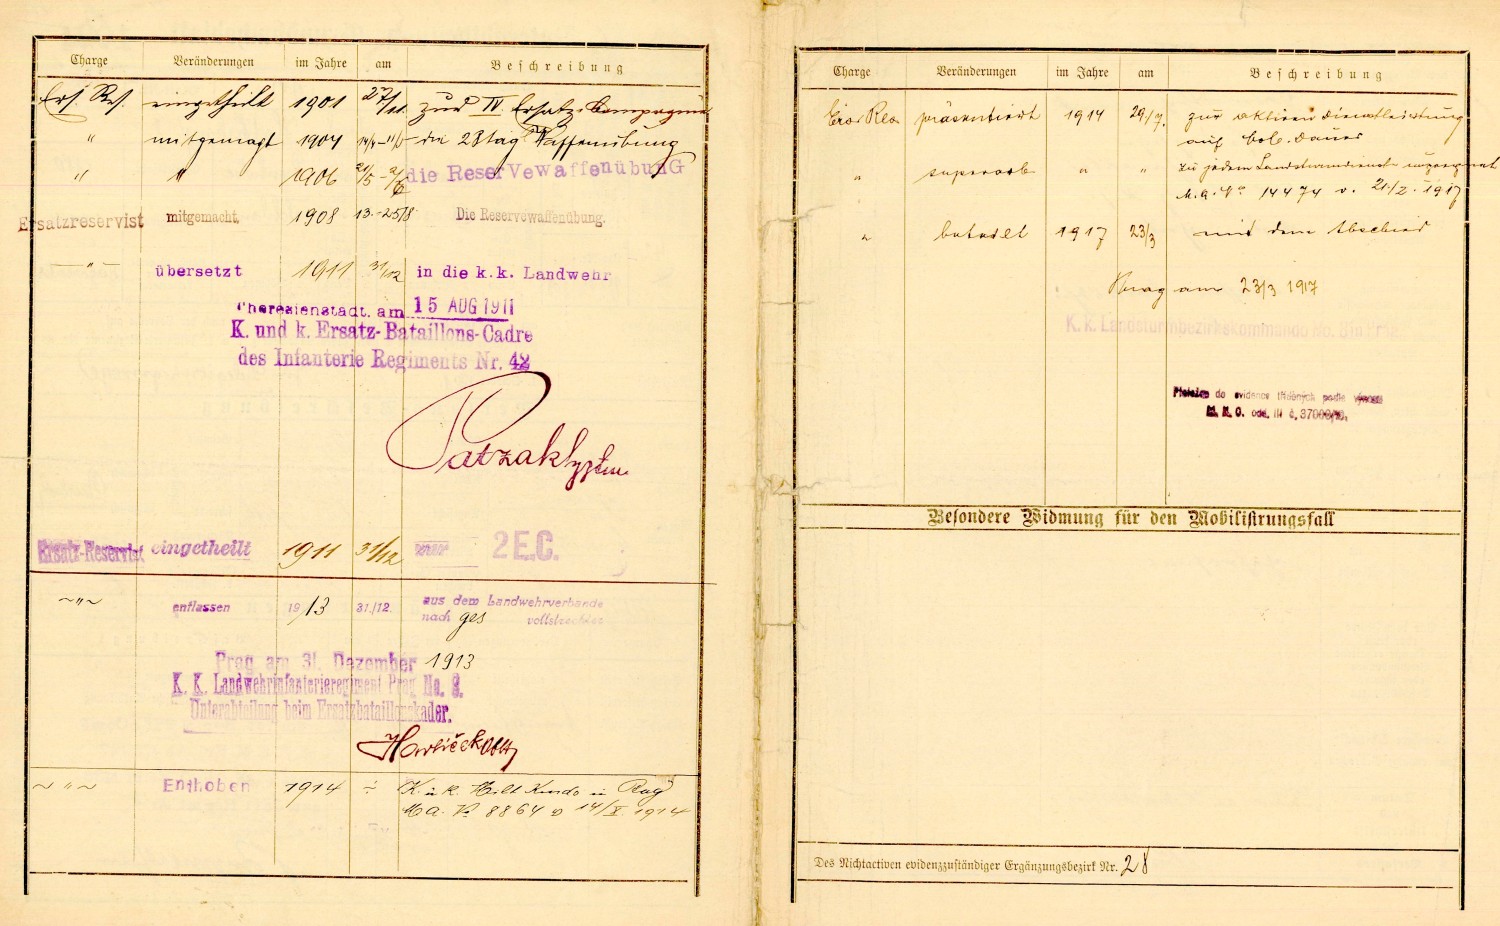 Charge Veränderungen im Jahre am Beschreibung
Ers. Res. eingetheilt 1901 27/11 zur IV. Ersatz-Compagnie
" mitgemacht 1904 14/4-11/5 die 28täg Waffenübung
" " 1906 21/5 - 2/6 die Reservewaffenübung
Ersatzreservist mitgemacht, 1908 13.-25/8 Die Reservewaffenübung.
— " — übersetzt 1911 31/12 in die k.k. Landwehr
Theresienstadt, am 15 AUG 1911
K. und k. Ersatz-Bataillons-Cadre
des Infanterie Regiments Nr. 42
Ersatz-Reservist eingetheilt 1911 31/12 zur 2 E.C.
~"~ entlassen 1913 31./12. aus dem Landwehrverbande
nach ges vollstreckter
Prag am 31. Dezember 1913
K. K. Landwehrinfanterieregiment Prag No. 8.
Unterabteilung beim Ersatzbataillonskader.
~ " ~ Enthoben 1914 K. u. k. Milt Kmdo in Prag
M.A. No 8864 v 14/V. 1914
Charge Veränderungen im Jahre am Beschreibung
Ers. Res. präsentiert 1914 29/7. zur aktiven Dienstleistung
auf bes. Dauer
" superarb " " zu jedem Landsturmdienst ungeeignet
M.A. No 14474 v. 21/2. 1917
" beurlt 1917 23/3 mit dem Abschied
Prag am 23/3 1917
K. k. Landsturmbezirkskommando No.
do evidence tříděných podle výnosu
M. N. O. odd. III č. 37008
Besondere Widmung für den Mobilisirungsfall
Des Nichtactiven evidenzzuständiger Ergänzungsbezirk Nr. 28